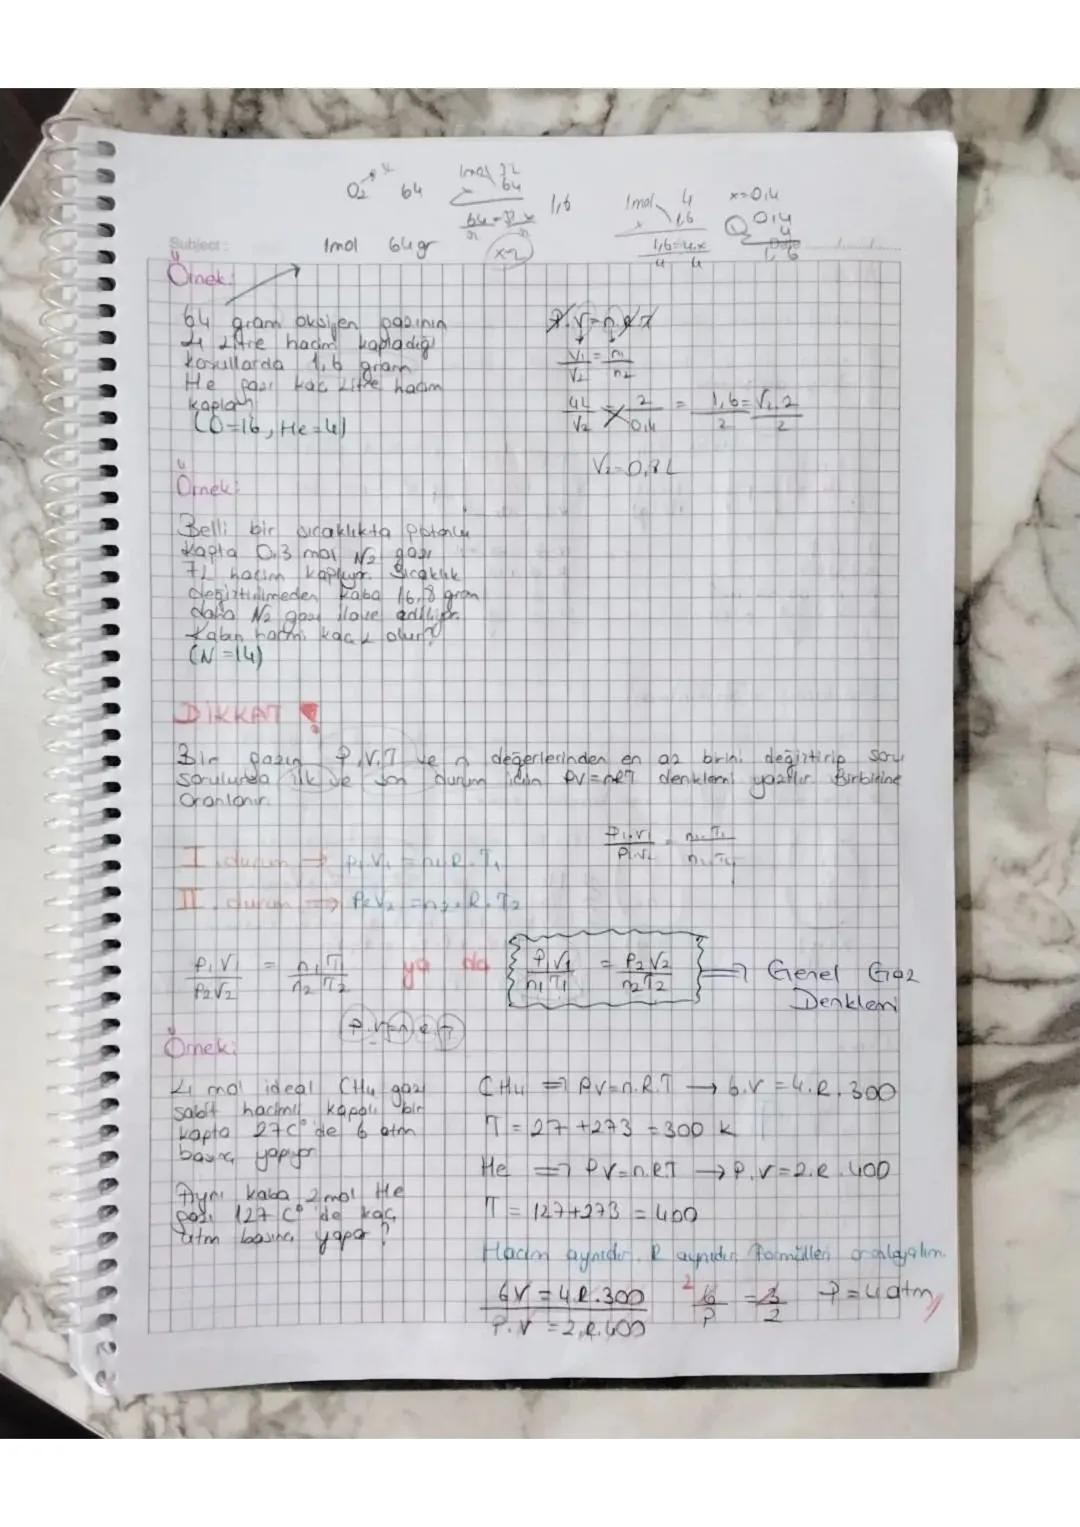 O₂ 64
1mol 32
x 64
64=32x
x=2
1,6
1mol 4
x 1,6
1,6=4.x
4 4
x=0,4
0,4
4
1,6
Subject:
1mol 64gr
Örnek:
64 gram oksijen gazının
4 Litre hacim kapladığı
koşullarda 1,6 gram
He gazı kaç Litre hacim
kaplar?
(O=16, He=4)
P.V=n.R.T
V₁/V₂ = n₁/n₂
4L/V₂ = 2/0,4 = 1,6/2 = V₂.2/2
V₂=0,8L
Örnek:
Belli bir sıcaklıkta pistonlu
kapta 0,3 mol N₂ gazı
7L hacim kaplıyor. Sıcaklık
değiştirilmeden kaba 16,8 gram
daha N₂ gazı ilave ediliyor.
Kabın hacmi kaç L olur?
(N=14)
DİKKAT !
Bir gazın P,V,T ve n değerlerinden en az birini değiştirip soru
sorulursa ilk ve son durum için PV=nRT denklemi yazılır. Birbirine
oranlanır.
P₁.V₁/P₂.V₂ = n₁.T₁/n₂.T₂
I. durum → P₁.V₁=n₁.R.T₁
II. durum → P₂V₂=n₂.R.T₂
P₁V₁/P₂V₂ = n₁T₁/n₂T₂ ya da P₁V₁/n₁T₁ = P₂V₂/n₂T₂ ⇒ Genel Gaz
Denklemi
P.V=n.R.T
Örnek:
4 mol ideal CH₄ gazı
sabit hacimli kapalı bir
kapta 27C° de 6 atm
basınç yapıyor
Aynı kaba 2 mol He
gazı 127 C° de kaç
atm basınç yapar?
CH₄ ⇒ PV=n.R.T → 6.V=4.R.300
T=27+273=300 K
He ⇒ PV=n.R.T → P.V=2.R.400
T=127+273=400
Hacim aynıdır. R aynıdır. Formülleri oranlayalım.
6V=4.R.300
P.V=2.R.400
6/P = 3/2 P=4 atm